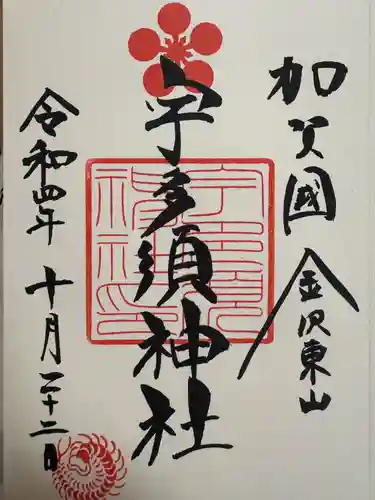 加賀國
金沢東山
宇多須神社
令和四年
十月二十二日